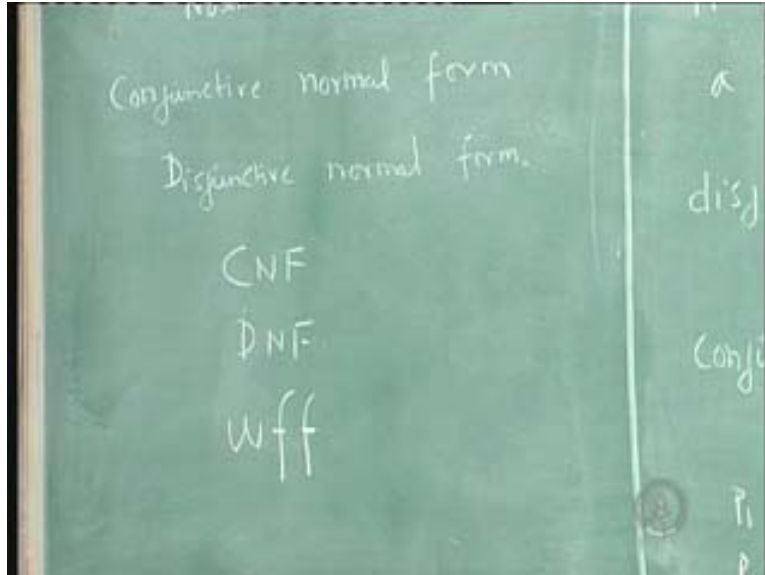 Conjunctive normal form
Disjunctive normal form.
CNF
DNF.
wff
a
disj
Conju
P1